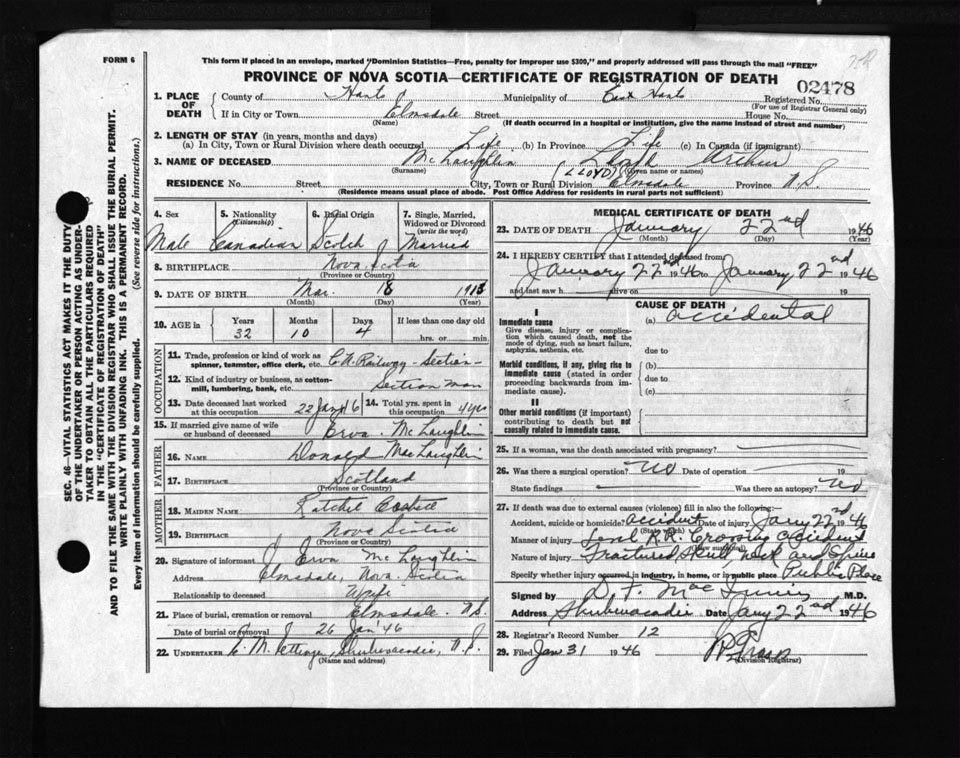 FORM 6
This form if placed in an envelope, marked "Dominion Statistics—Free, penalty for improper use $300," and properly addressed will pass through the mail "FREE"
PROVINCE OF NOVA SCOTIA—CERTIFICATE OF REGISTRATION OF DEATH
02478
1. PLACE OF DEATH County of Hants Municipality of East Hants Registered No.
(For use of Registrar General only)
If in City or Town Elmsdale Street House No.
(Name) (If death occurred in a hospital or institution, give the name instead of street and number)
2. LENGTH OF STAY (in years, months and days)
(a) In City, Town or Rural Division where death occurred Life (b) In Province Life (c) In Canada (if immigrant)
3. NAME OF DECEASED McLaughlin Lloyd Arthur
(Surname) (LLOYD) (Given name or names)
RESIDENCE No. Street City, Town or Rural Division Elmsdale Province N.S.
(Residence means usual place of abode. Post Office Address for residents in rural parts not sufficient)
4. Sex 5. Nationality (Citizenship) 6. Racial Origin 7. Single, Married, Widowed or Divorced (write the word)
Male Canadian Scotch Married
8. BIRTHPLACE Nova Scotia
(Province or Country)
9. DATE OF BIRTH Mar. 18 1913
(Month) (Day) (Year)
10. AGE in Years Months Days If less than one day old
32 10 4 hrs. or min.
OCCUPATION
11. Trade, profession or kind of work as spinner, teamster, office clerk, etc. C.N. Railway - Section -
12. Kind of industry or business, as cotton-mill, lumbering, bank, etc. Section man
13. Date deceased last worked at this occupation 22 Jan 46 14. Total yrs. spent in this occupation 4 yrs
15. If married give name of wife or husband of deceased McLaughlin
FATHER
16. NAME Donald MacLaughlin
17. BIRTHPLACE Scotland
(Province or Country)
MOTHER
18. MAIDEN NAME Ratchel
19. BIRTHPLACE Nova Scotia
(Province or Country)
20. Signature of informant McLaughlin
Address Elmsdale, Nova Scotia
Relationship to deceased Wife
21. Place of burial, cremation or removal Elmsdale. N.S.
Date of burial or removal 26 Jan '46
22. UNDERTAKER Shubenacadie, N.S.
(Name and address)
MEDICAL CERTIFICATE OF DEATH
23. DATE OF DEATH January 22nd 1946
(Month) (Day) (Year)
24. I HEREBY CERTIFY that I attended deceased from
January 22nd 1946 to January 22nd 1946
and last saw h alive on 19
CAUSE OF DEATH
I
Immediate cause (a) accidental
Give disease, injury or complication which caused death, not the mode of dying, such as heart failure, asphyxia, asthenia, etc. due to
Morbid conditions, if any, giving rise to immediate cause (stated in order proceeding backwards from immediate cause). (b)
due to
(c)
II
Other morbid conditions (if important) contributing to death but not causally related to immediate cause.
25. If a woman, was the death associated with pregnancy?
26. Was there a surgical operation? No Date of operation 19
State findings Was there an autopsy? No
27. If death was due to external causes (violence) fill in also the following:—
Accident, suicide or homicide? accident Date of injury Jany 22nd 1946
(State which)
Manner of injury R.R. Crossing accident
Nature of injury Fractured Skull, neck and Spine
Specify whether injury occurred in industry, in home, or in public place Public Place
Signed by D. F. MacInnis M.D.
Address Shubenacadie Date Jany 22nd 1946
28. Registrar's Record Number 12
29. Filed Jan 31 1946
(Division Registrar)
SEC. 46—VITAL STATISTICS ACT MAKES IT THE DUTY OF THE UNDERTAKER OR PERSON ACTING AS UNDERTAKER TO OBTAIN ALL THE PARTICULARS REQUIRED IN THE "CERTIFICATE OF REGISTRATION OF DEATH" AND TO FILE THE SAME WITH THE DIVISION REGISTRAR WHO SHALL ISSUE THE BURIAL PERMIT.
WRITE PLAINLY WITH UNFADING INK. THIS IS A PERMANENT RECORD.
Every item of information should be carefully supplied. (See reverse side for instructions.)